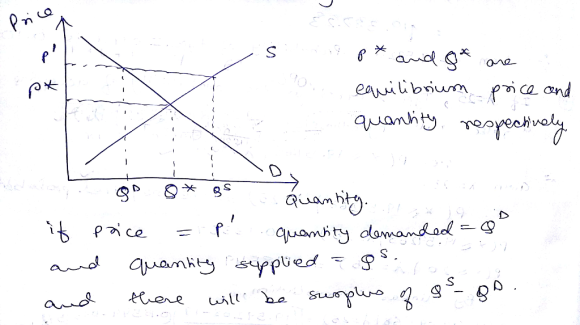 Price
P'
P*
S
D
Q^D Q* Q^S
Quantity.
P* and Q* are
equilibrium price and
quantity respectively
if price = P' quantity demanded = Q^D
and quantity supplied = Q^S.
and there will be surplus of Q^S - Q^D.